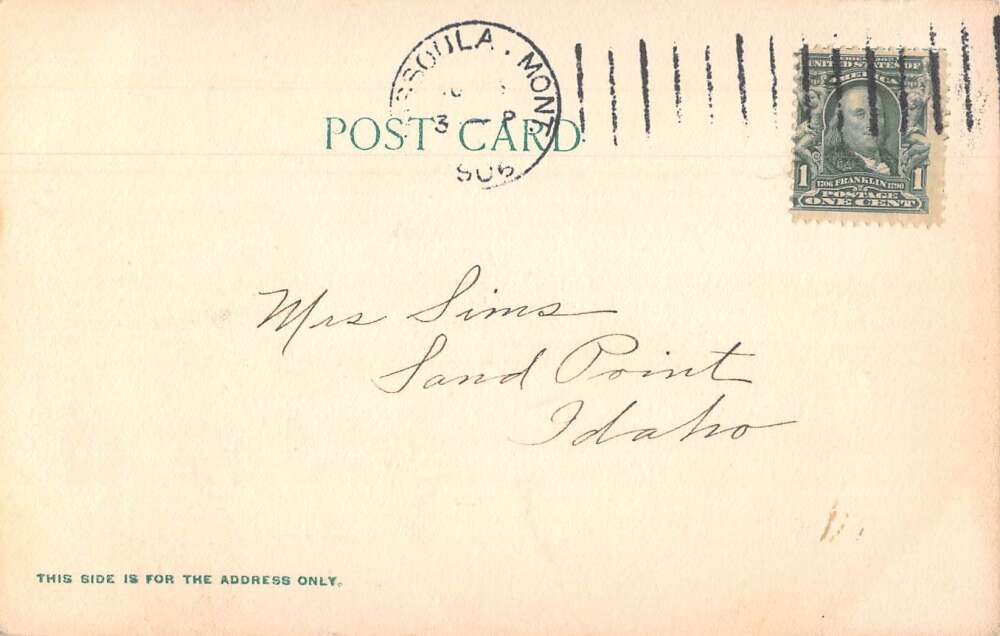 SSOULA . MONT.
3 - P
906
POST CARD
UNITED STATES OF
AMERICA
1 1706 FRANKLIN 1790 1
POSTAGE
ONE CENT
Mrs Sims
Sand Point
Idaho
THIS SIDE IS FOR THE ADDRESS ONLY.